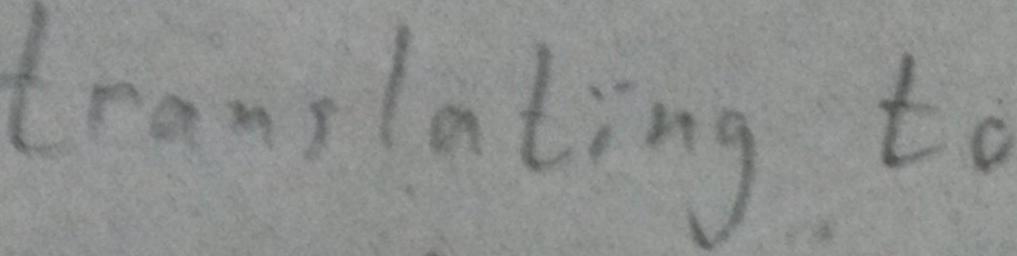 translating to